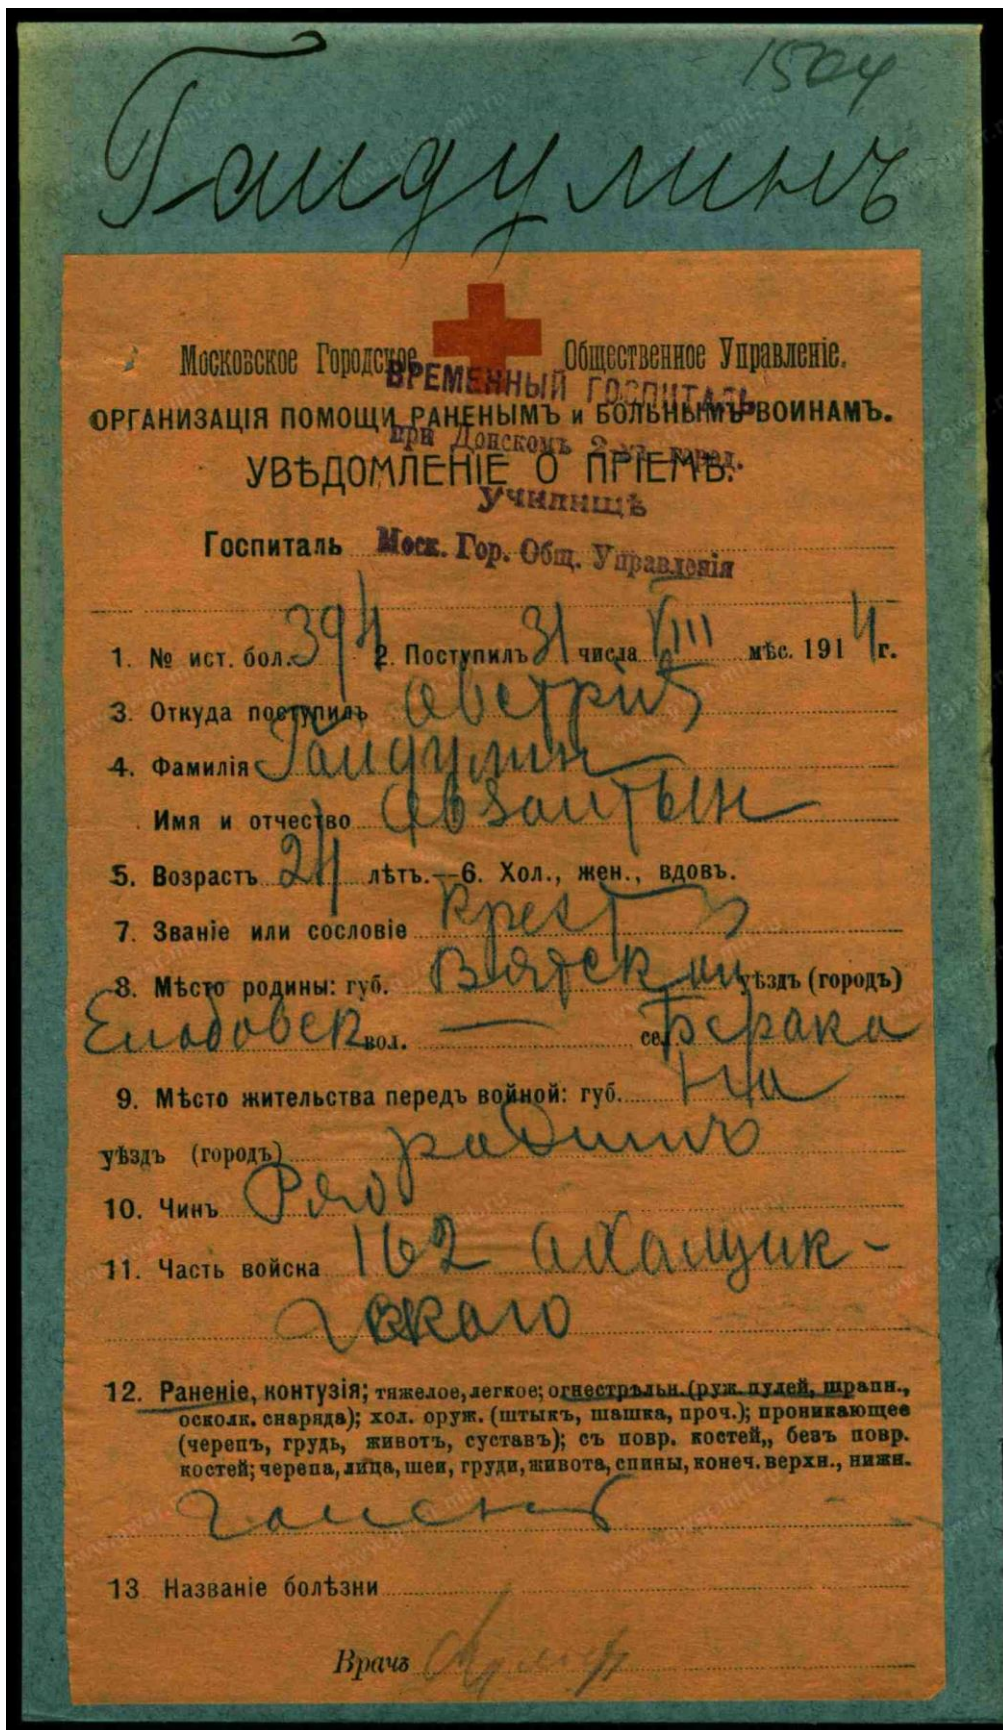 1504
Гайдулинъ
Московское Городское Общественное Управленіе.
ВРЕМЕННЫЙ ГОСПИТАЛЬ
ОРГАНИЗАЦІЯ ПОМОЩИ РАНЕНЫМЪ и БОЛЬНЫМЪ ВОИНАМЪ.
при Донскомъ 2-мъ город.
УВѢДОМЛЕНІЕ О ПРІЕМѢ.
Училищѣ
Госпиталь Моск. Гор. Общ. Управленія
1. № ист. бол. 394 2. Поступилъ 31 числа VIII мѣс. 1914 г.
3. Откуда поступилъ Австрія
4. Фамилія Гайдулин
Имя и отчество
5. Возрастъ 24 лѣтъ.—6. Хол., жен., вдовъ.
7. Званіе или сословіе Крест
8. Мѣсто родины: губ. Вятской уѣздъ (городъ)
Елабовск вол. — сел.
9. Мѣсто жительства передъ войной: губ. На
уѣздъ (городъ) родинѣ
10. Чинъ Ряд
11. Часть войска 162 Ахалцик-
скаго
12. Раненіе, контузія; тяжелое, легкое; огнестрѣльн. (руж. пулей, шрапн.,
осколк. снаряда); хол. оруж. (штыкъ, шашка, проч.); проникающее
(черепъ, грудь, животъ, суставъ); съ повр. костей,, безъ повр.
костей; черепа, лица, шеи, груди, живота, спины, конеч. верхн., нижн.
13. Названіе болѣзни
Врачъ
www.gwar.mil.ru